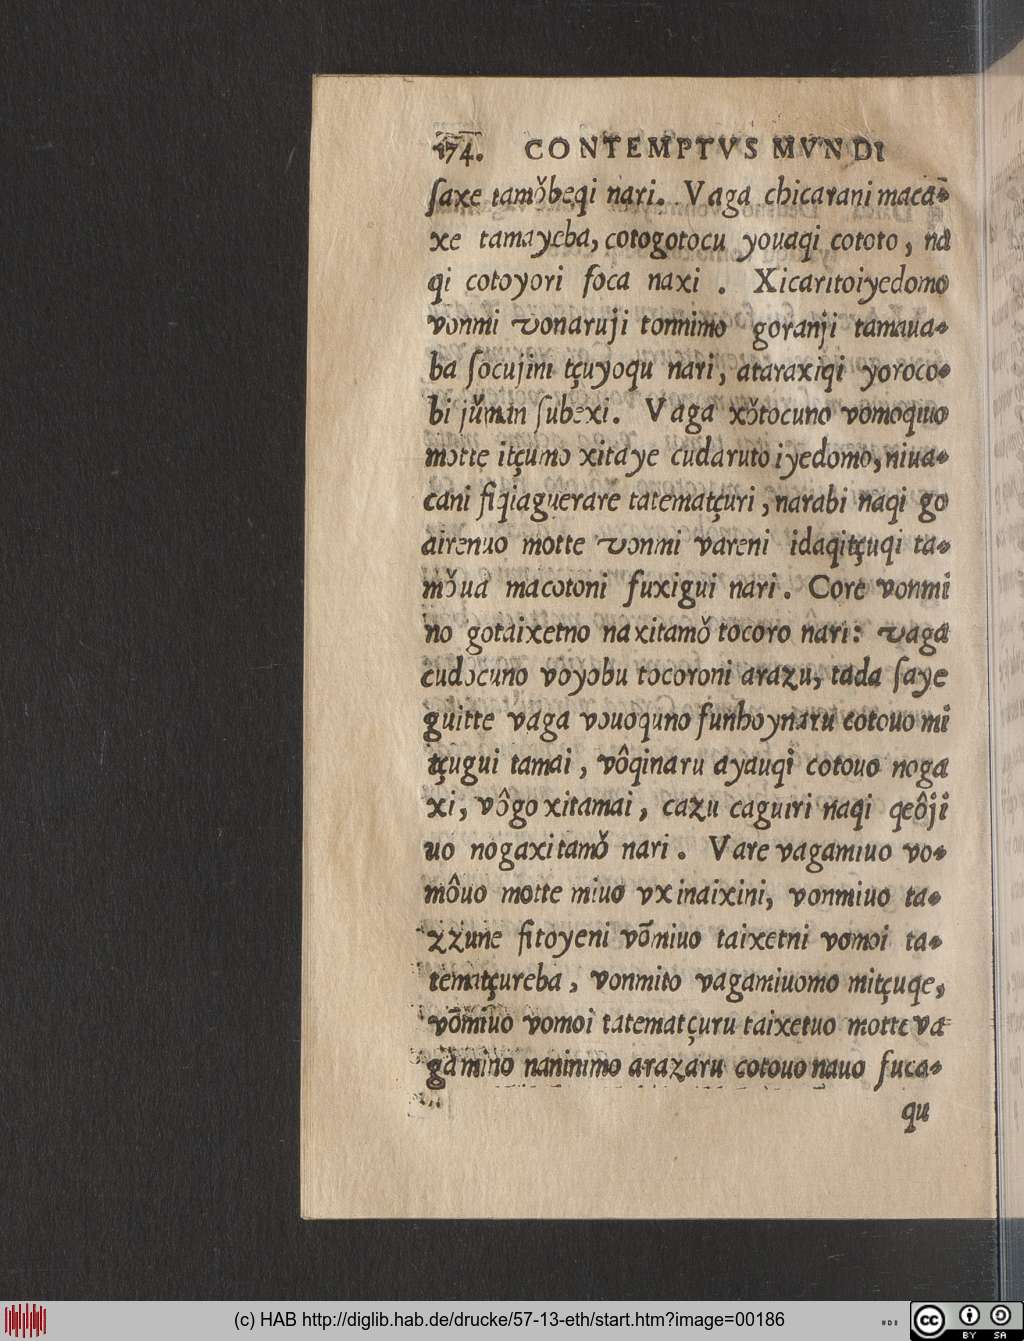 174. CONTEMPTVS MVNDI
ſaxe tamǒbeqi nari. Vaga chicarani maca-
xe tamayeba, cotogotocu youaqi cototo, na
qi cotoyori foca naxi. Xicaritoiyedomo
vonmi vonaruji tonnimo goranji tamaua-
ba ſocujini tçuyoqu nari, ataraxiqi yoroco-
bi jǔman ſubexi. Vaga xǒtocuno vomoqiuo
motte itçumo xitaye cudaruto iyedomo, niua-
cani fiqiaguerare tatematçuri, narabi naqi go
airenuo motte vonmi vareni idaqitçuqi ta-
mǒua macotoni fuxigui nari. Core vonmi
no gotaixetno naxitamǒ tocoro nari: vaga
cudocuno voyobu tocoroni arazu, tada ſaye
guitte vaga vouoquno funboynaru cotouo mi
tçugui tamai, vôqinaru ayauqi cotouo noga
xi, vôgo xitamai, cazu caguiri naqi qeôji
uo nogaxitamǒ nari. Vare vagamiuo vo-
môuo motte miuo vxinaixini, vonmiuo ta-
zzune fitoyeni võmiuo taixetni vomoi ta-
tematçureba, vonmito vagamiuomo mitçuqe,
võmiuo vomoi tatematçuru taixetuo motte va-
gamino naninimo arazaru cotouo nauo fuca-
qu
(c) HAB http://diglib.hab.de/drucke/57-13-eth/start.htm?image=00186
cc BY SA